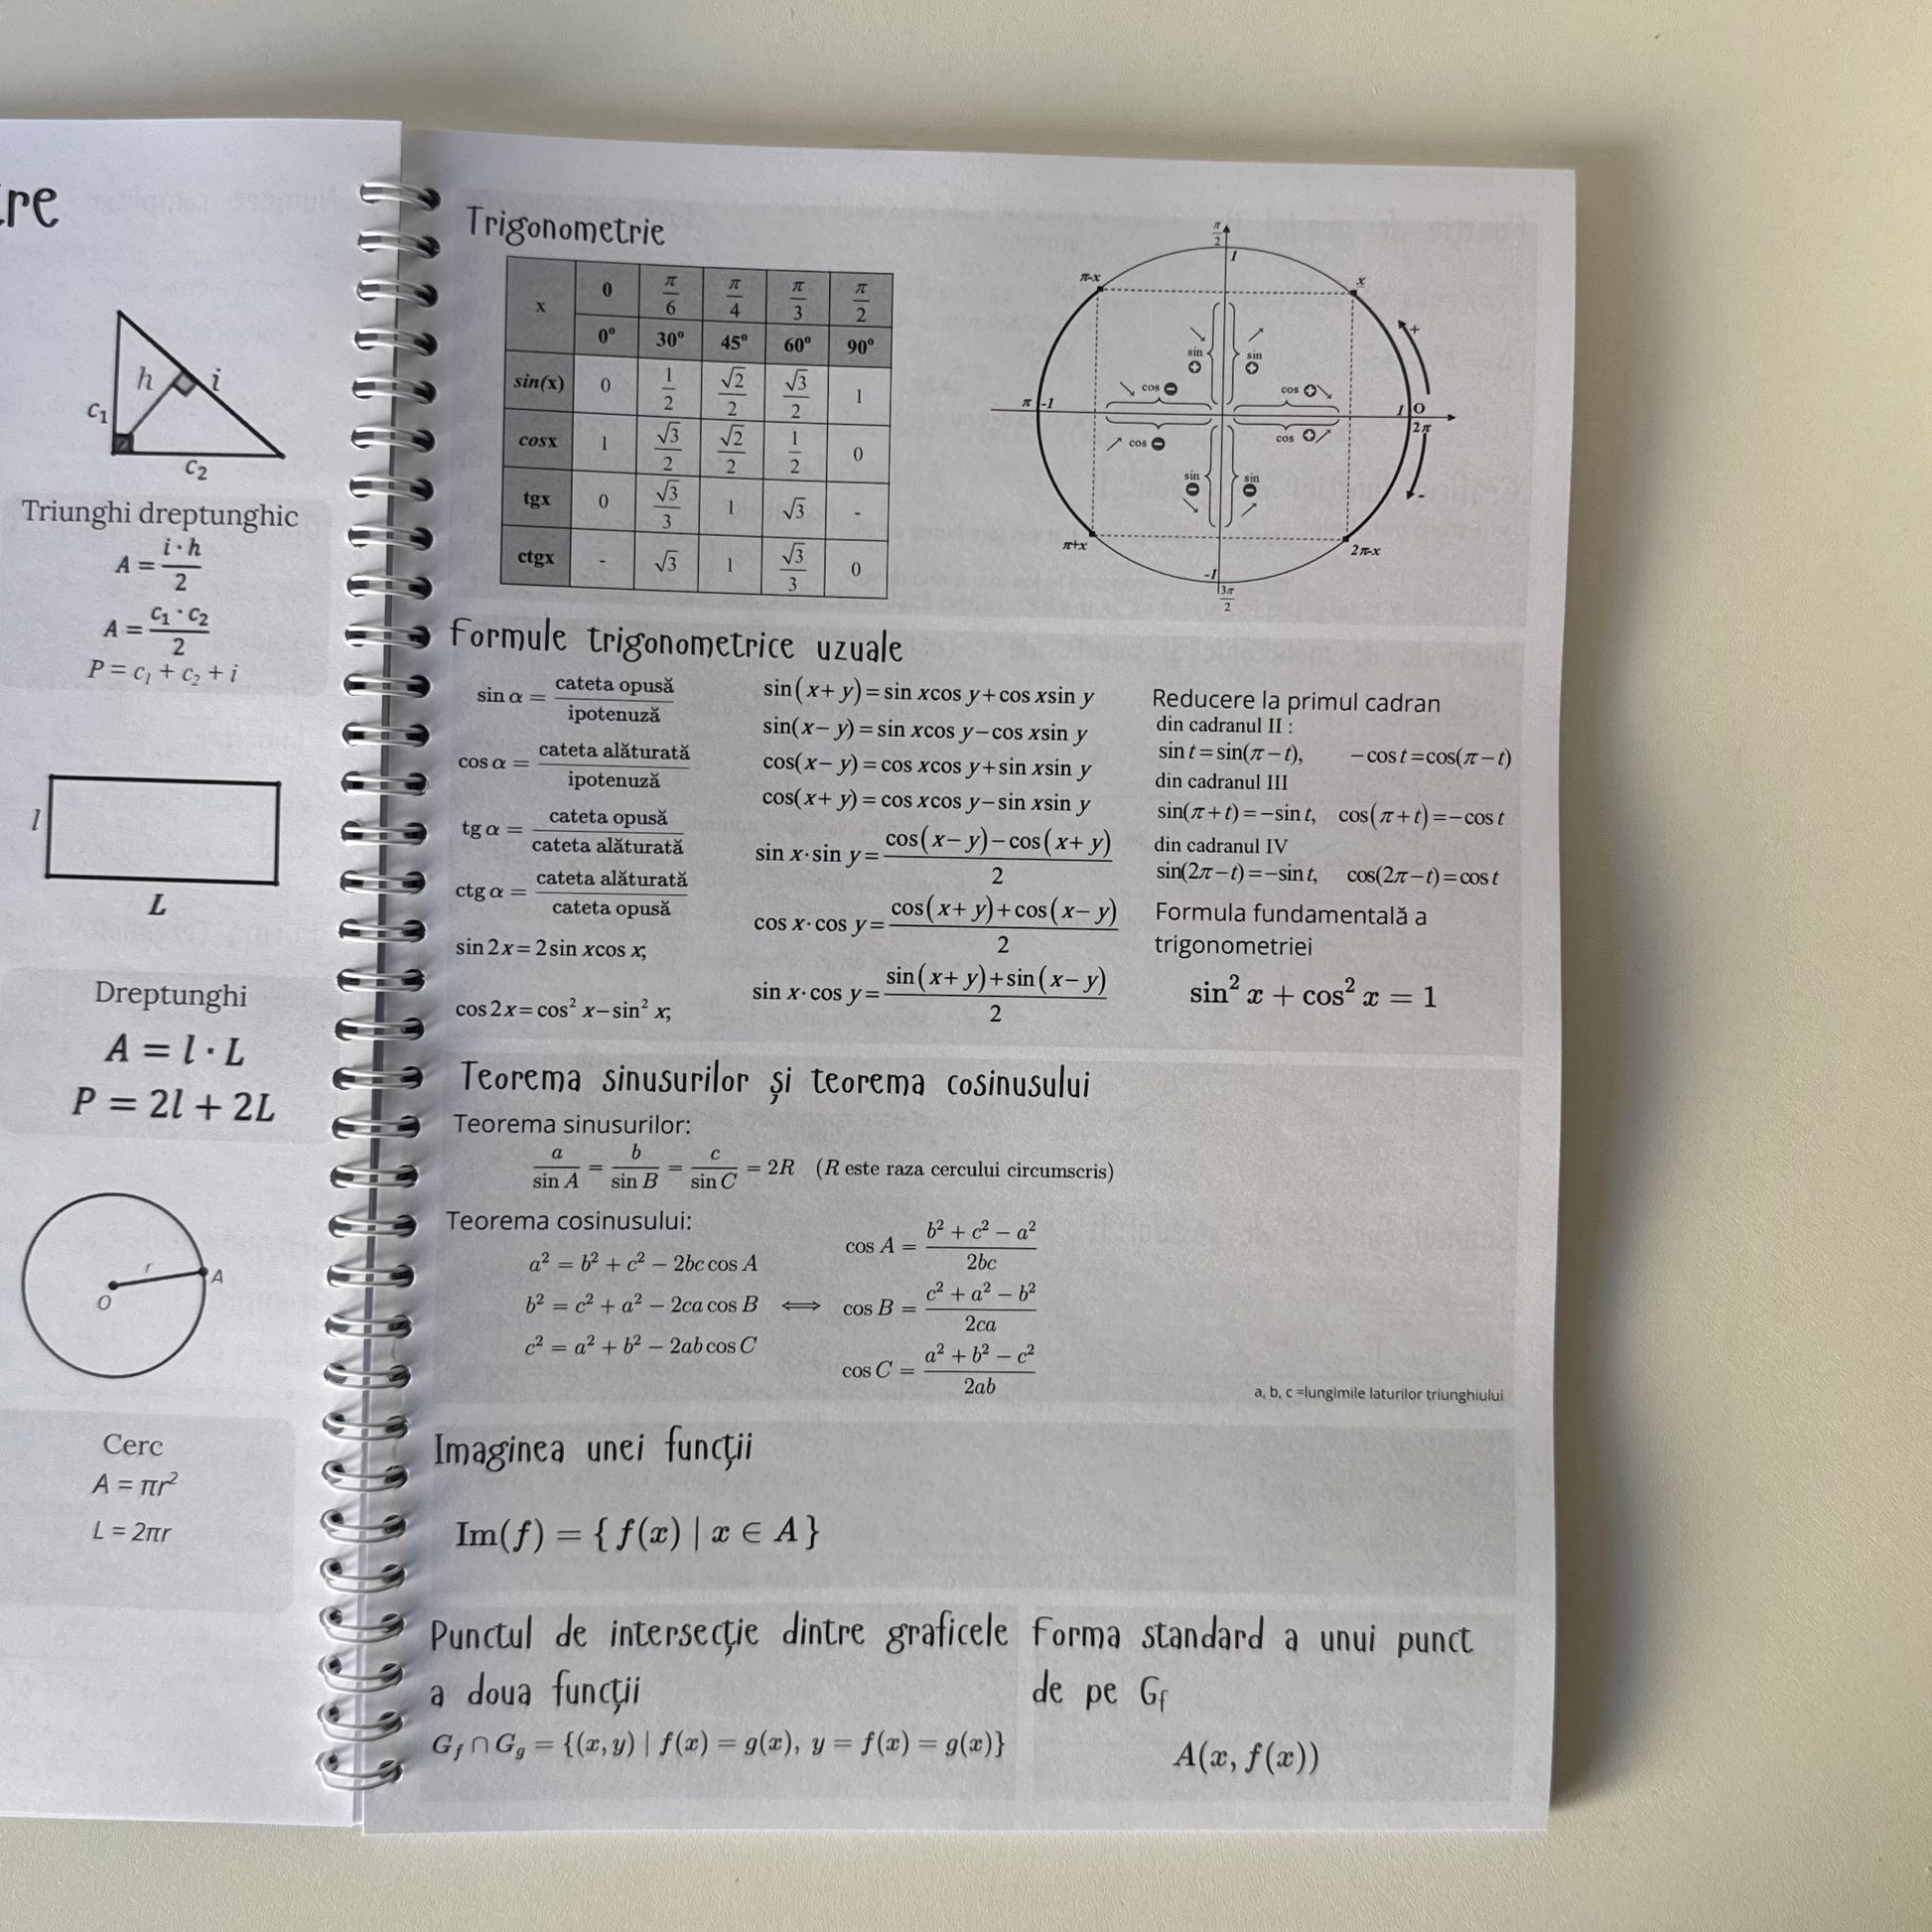 re
h
i
c₁
c₂
Triunghi dreptunghic
A = i · h / 2
A = c₁ · c₂ / 2
P = c₁ + c₂ + i
l
L
Dreptunghi
A = l · L
P = 2l + 2L
r
A
O
Cerc
A = πr²
L = 2πr
Trigonometrie
x 0 π/6 π/4 π/3 π/2
0° 30° 45° 60° 90°
sin(x) 0 1/2 √2/2 √3/2 1
cosx 1 √3/2 √2/2 1/2 0
tgx 0 √3/3 1 √3 -
ctgx - √3 1 √3/3 0
π/2
1
π-x
x
+
sin ⊕ sin ⊕
cos ⊖ cos ⊕
π -1 1 O
2π
cos ⊖ cos ⊕
sin ⊖ sin ⊖
-
π+x
2π-x
-1
3π/2
Formule trigonometrice uzuale
sin α = cateta opusă / ipotenuză
cos α = cateta alăturată / ipotenuză
tg α = cateta opusă / cateta alăturată
ctg α = cateta alăturată / cateta opusă
sin 2x = 2sin xcos x;
cos 2x = cos² x − sin² x;
sin(x+y) = sin xcos y + cos xsin y
sin(x−y) = sin xcos y − cos xsin y
cos(x−y) = cos xcos y + sin xsin y
cos(x+y) = cos xcos y − sin xsin y
sin x · sin y = cos(x−y) − cos(x+y) / 2
cos x · cos y = cos(x+y) + cos(x−y) / 2
sin x · cos y = sin(x+y) + sin(x−y) / 2
Reducere la primul cadran
din cadranul II :
sin t = sin(π−t), −cos t = cos(π−t)
din cadranul III
sin(π+t) = −sin t, cos(π+t) = −cos t
din cadranul IV
sin(2π−t) = −sin t, cos(2π−t) = cos t
Formula fundamentală a
trigonometriei
sin² x + cos² x = 1
Teorema sinusurilor și teorema cosinusului
Teorema sinusurilor:
a / sin A = b / sin B = c / sin C = 2R (R este raza cercului circumscris)
Teorema cosinusului:
a² = b² + c² − 2bc cos A
b² = c² + a² − 2ca cos B ⟺
c² = a² + b² − 2ab cos C
cos A = b² + c² − a² / 2bc
cos B = c² + a² − b² / 2ca
cos C = a² + b² − c² / 2ab
a, b, c =lungimile laturilor triunghiului
Imaginea unei funcții
Im(f) = { f(x) | x ∈ A }
Punctul de intersecție dintre graficele
a doua funcții
G_f ∩ G_g = {(x, y) | f(x) = g(x), y = f(x) = g(x)}
Forma standard a unui punct
de pe Gf
A(x, f(x))